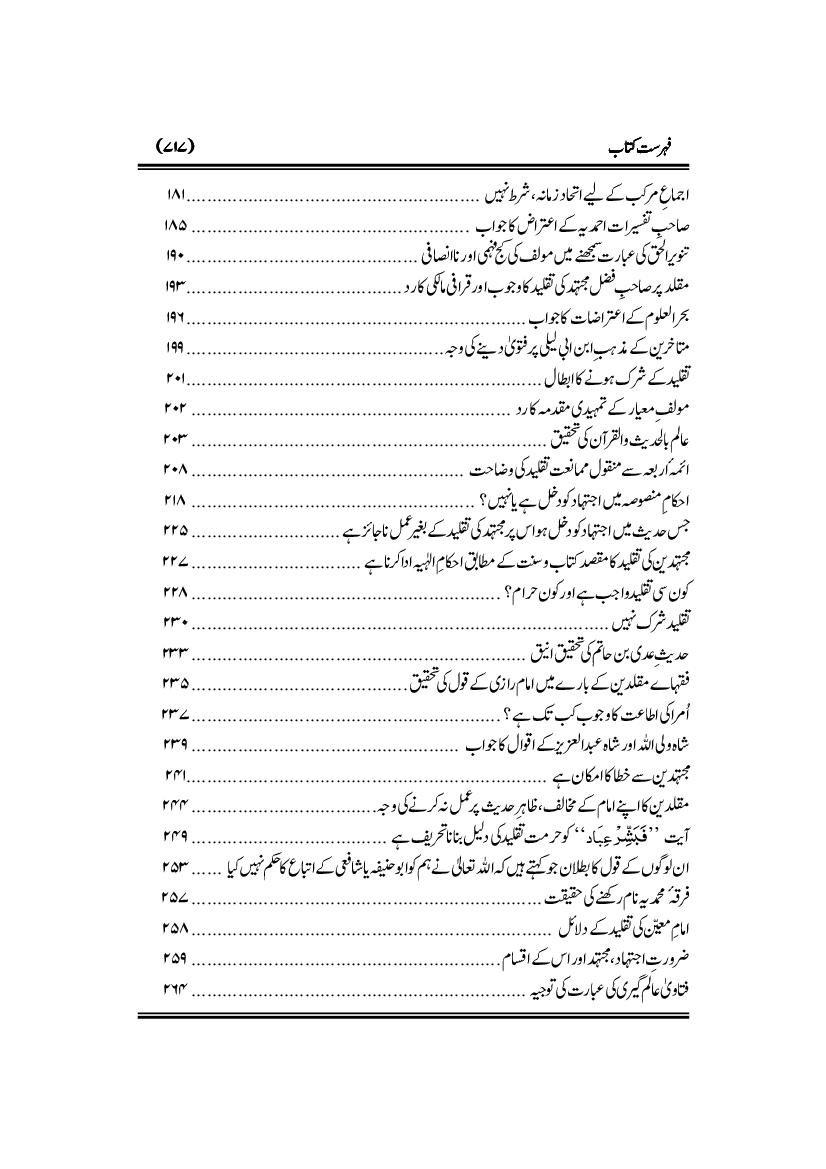 فہرست کتاب (۷۱۷)
اجماعِ مرکب کے لیے اتحاد زمانہ، شرط نہیں ........ ۱۸۱
صاحبِ تفسیرات احمدیہ کے اعتراض کا جواب ........ ۱۸۵
تنویر الحق کی عبارت سمجھنے میں مولف کی کج فہمی اور ناانصافی ........ ۱۹۰
مقلد پر صاحبِ فضل مجتہد کی تقلید کا وجوب اور قرافی مالکی کا رد ........ ۱۹۳
بحر العلوم کے اعتراضات کا جواب ........ ۱۹۶
متاخرین کے مذہبِ ابن ابی لیلی پر فتویٰ دینے کی وجہ ........ ۱۹۹
تقلید کے شرک ہونے کا ابطال ........ ۲۰۱
مولفِ معیار کے تمہیدی مقدمہ کا رد ........ ۲۰۲
عالم بالحدیث والقرآن کی تحقیق ........ ۲۰۳
ائمۂ اربعہ سے منقول ممانعت تقلید کی وضاحت ........ ۲۰۸
احکامِ منصوصہ میں اجتہاد کو دخل ہے یا نہیں؟ ........ ۲۱۸
جس حدیث میں اجتہاد کو دخل ہو اس پر مجتہد کی تقلید کے بغیر عمل ناجائز ہے ........ ۲۲۵
مجتہدین کی تقلید کا مقصد کتاب و سنت کے مطابق احکامِ الٰہیہ ادا کرنا ہے ........ ۲۲۷
کون سی تقلید واجب ہے اور کون حرام؟ ........ ۲۲۸
تقلید شرک نہیں ........ ۲۳۰
حدیثِ عدی بن حاتم کی تحقیق انیق ........ ۲۳۳
فقہاے مقلدین کے بارے میں امام رازی کے قول کی تحقیق ........ ۲۳۵
اُمرا کی اطاعت کا وجوب کب تک ہے؟ ........ ۲۳۷
شاہ ولی اللہ اور شاہ عبد العزیز کے اقوال کا جواب ........ ۲۳۹
مجتہدین سے خطا کا امکان ہے ........ ۲۴۱
مقلدین کا اپنے امام کے مخالف، ظاہرِ حدیث پر عمل نہ کرنے کی وجہ ........ ۲۴۴
آیت ’’فَبَشِّرْ عِبَاد‘‘ کو حرمت تقلید کی دلیل بنانا تحریف ہے ........ ۲۴۹
ان لوگوں کے قول کا بطلان جو کہتے ہیں کہ اللہ تعالیٰ نے ہم کو ابو حنیفہ یا شافعی کے اتباع کا حکم نہیں کیا ...... ۲۵۳
فرقۂ محمدیہ نام رکھنے کی حقیقت ........ ۲۵۷
امامِ معیّن کی تقلید کے دلائل ........ ۲۵۸
ضرورتِ اجتہاد، مجتہد اور اس کے اقسام ........ ۲۵۹
فتاویٰ عالم گیری کی عبارت کی توجیہ ........ ۲۶۴